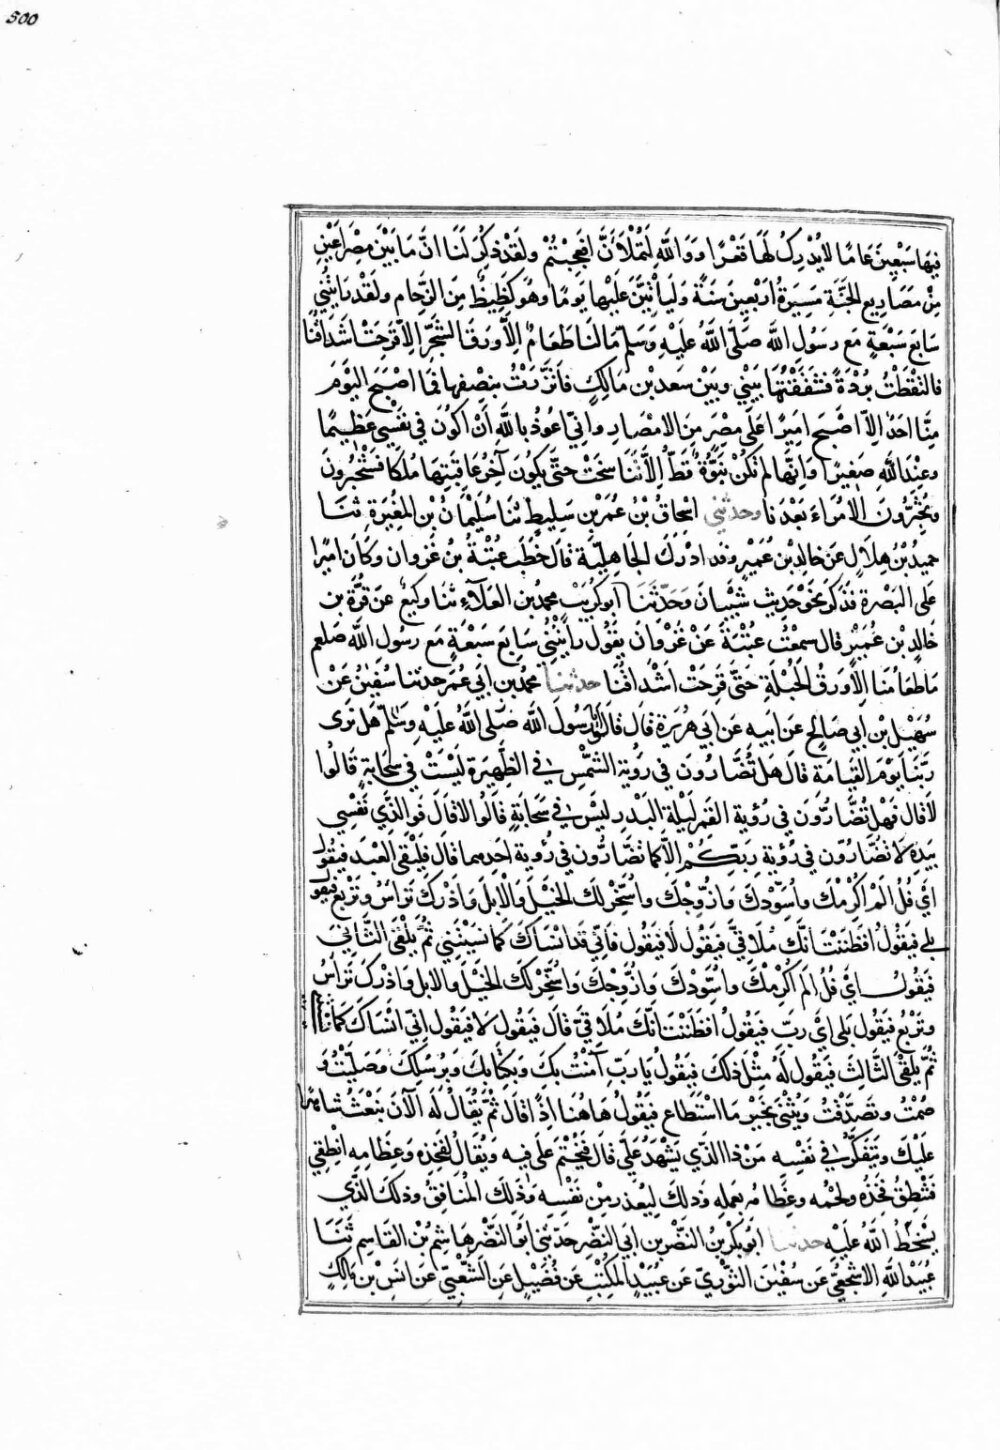 500
فِيهَا سَبْعِينَ عَامًا لَا يُدْرِكُ لَهَا قَعْرًا وَوَاللَّهِ لَتُمْلَأَنَّ افَعَجِبْتُمْ وَلَقَدْ ذُكِرَ لَنَا انَّ مَا بَيْنَ مِصْرَاعَيْنِ
مِنْ مَصَارِيعِ الجَنَّةِ مَسِيرَةُ اَرْبَعِينَ سَنَةً وَلَيَأْتِيَنَّ عَلَيْهَا يَومًا وَهُوَ كَظِيظٌ مِنَ الزِّحَامِ وَلَقَدْ رَايْتُنِي
سَابِعَ سَبْعَةٍ مَعَ رَسُولِ اللَّهِ صَلَّى اللَّهُ عَلَيْهِ وَسَلَّمَ مَا لَنَا طَعَامٌ اِلَّا وَرَقُ الشَّجَرِ الَّا قَرِحَتْ اشْدَاقُنَا
فَالتَقَطْتُ بُرْدَةً فَشَقَقْتُهَا بَيْنِي وَبَيْنَ سَعْدِ بْنِ مَالِكٍ فَاتَّزَرْتُ بِنِصْفِهَا فَمَا اصْبَحَ اليَوْمَ
مِنَّا احَدٌ الَّا اصْبَحَ امِيرًا عَلَى مِصْرٍ مِنَ الامْصَارِ وَاِنِّي اعُوذُ بِاللَّهِ اَنْ اَكُونَ فِي نَفْسِي عَظِيمًا
وَعِنْدَ اللَّهِ صَغِيرًا وَاِنَّهَا لَمْ تَكُنْ نُبُوَّةٌ قَطُّ اِلَّا تَنَاسَخَتْ حَتَّى يَكُونَ آخِرُ عَاقِبَتِهَا مُلْكًا فَسَتَخْبُرُونَ
وَتُجَرِّبُونَ الامَرَاءَ بَعْدَنَا وحدثني اسْحَاقُ بْنُ عُمَرَ بْنِ سَلِيطٍ ثَنَا سُلَيْمَانُ بْنُ المُغِيرَةِ ثَنَا
حميدُ بْنُ هِلَالٍ عَنْ خَالِدِ بْنِ عُمَيْرٍ وَقَد ادْرَكَ الجَاهِلِيَّةَ قَالَ خَطَبَ عُتْبَةُ بْنُ غَزْوَانَ وَكَانَ امِيرًا
عَلَى البَصْرَةِ فَذَكَرَ نَحْوَ حَدِيثِ شَيْبَانَ وَحَدَّثَنَا اَبُو كُرَيْبٍ مُحَمَّدُ بْنُ العَلَآءِ ثَنَا وَكِيعٌ عَنْ قُرَّةَ بْنِ
خَالِدِ بْنِ عُمَيْرٍ قَالَ سَمِعْتُ عُتْبَةَ عَنْ غَزْوَانَ يَقُولُ رَايْتُنِي سَابِعَ سَبْعَةٍ مَعَ رَسُولِ اللَّهِ صلعم
مَا طَعَامُنَا اِلَّا وَرَقُ الحُبْلَةِ حَتَّى قَرِحَتْ اَشْدَاقُنَا حدثنا مُحَمَّدُ بْنُ اَبِي عُمَرَ حدثنا سُفْيَنُ عَنْ
سُهَيْلِ بْنِ ابِي صَالِحٍ عَنْ ابِيهِ عَنْ ابِي هُرَيْرَةَ قَالَ قَالَوُا يَا رَسُولَ اللَّهِ صَلَّى اللَّهُ عَلَيْهِ وَسَلَّمَ هَلْ نَرَى
رَبَّنَا يَوْمَ القِيَامَةِ قَالَ هَلْ تُضَارُّونَ فِي رُؤيَةِ الشَّمْسِ فِي الظَّهِيرَةِ لَيْسَتْ فِي سَحَابَةٍ قَالُوا
لَا قَالَ فَهَلْ تُضَارُّونَ فِي رُؤْيَةِ القَمَرِ لَيْلَةَ البَدْرِ لَيْسَ فِي سَحَابَةٍ قَالُوا لَا قَالَ فَوَ الَّذِي نَفْسِي
بِيَدِهِ لَا تُضَارُّونَ فِي رُؤْيَةِ رَبِّكُمْ اِلَّا كَمَا تُضَارُّونَ فِي رُؤْيَةِ احَدِهِمَا قَالَ فَيَلْقَى العَبْدَ فَيَقُولُ
اَيْ فُلُ اَلَمْ اُكْرِمْكَ وَاُسَوِّدْكَ وَازَوِّجْكَ وَاُسَخِّرْ لَكَ الخَيْلَ وَالْابِلَ وَاَذَرْكَ تَرْاَسُ وَتَرْبَعُ فَيَقُو
بَلَى فَيَقُولُ افَظَنَنْتَ اَنَّكَ مُلَاقِيَّ فَيَقُولُ لَا فَيَقُولُ فَاِنِّي قَد انْسَاكَ كَمَا نَسِيتَنِي ثُمَّ يَلْقَى الثَّانِيَ
فَيَقُولُ اَيْ فُلُ الَمْ اُكْرِمْكَ وَاُسَوِّدْكَ وَازَوِّجْكَ وَاُسَخِّرْ لَكَ الخَيْلَ وَالابِلَ وَاَذَرْكَ تَرْاَسُ
وَتَرْبَعُ فَيَقُولُ بَلَى اَيْ رَبِّ فَيَقُولُ افَظَنَنْتَ اَنَّكَ مُلَاقِيَّ قَالَ فَيَقُولُ لَا فَيَقُولُ اِنِّي اَنْسَاكَ كَمَا
ثُمَّ يَلْقَى الثَّالِثَ فَيَقُولُ لَهُ مِثْلَ ذَلِكَ فَيَقُولُ يَا رَبِّ آمَنْتُ بِكَ وَبِكِتَابِكَ وَبِرُسُلِكَ وَصَلَّيْتُ وَ
صُمْتُ وَتَصَدَّقْتُ وَيُثْنِي بِخَيْرٍ مَا اسْتَطَاعَ فَيَقُولُ هَاهُنَا اِذًا قَالَ ثُمَّ يُقَالُ لَهُ الآنَ نَبْعَثُ شَاهِدًا
عَلَيْكَ وَيَتَفَكَّرُ فِي نَفْسِهِ مَنْ ذَا الَّذِي يَشْهَدُ عَلَيَّ قَالَ فَيُخْتَمُ عَلَى فِيهِ وَيُقَالُ لِفَخِذِهِ وَعِظَامِهِ انْطِقِي
فَتَنْطِقُ فَخِذُهُ وَلَحْمُهُ وَعِظَامُهُ بِعَمَلِهِ وَذَلِكَ لِيُعْذِرَ مِنْ نَفْسِهِ وَذَلِكَ المُنَافِقُ وَذَلِكَ الَّذِي
يَسْخَطُ اللَّهُ عَلَيْهِ حدثنا اَبُو بَكْرِ بْنُ النَّضْرِ بْنِ اَبِي النَّضْرِ حَدَّثَنِي اَبُو النَّضْرِ هَاشِمُ بْنُ القَاسِمِ ثَنَا
عُبَيْدُ اللَّهِ الاشْجَعِيُّ عَنْ سُفْيَنَ الثَّوْرِيِّ عَنْ عُبَيْدٍ المُكَتِّبِ عَنْ فُضَيْلٍ عَنِ الشَّعْبِيِّ عَنْ انَسِ بْنِ مَالِكٍ